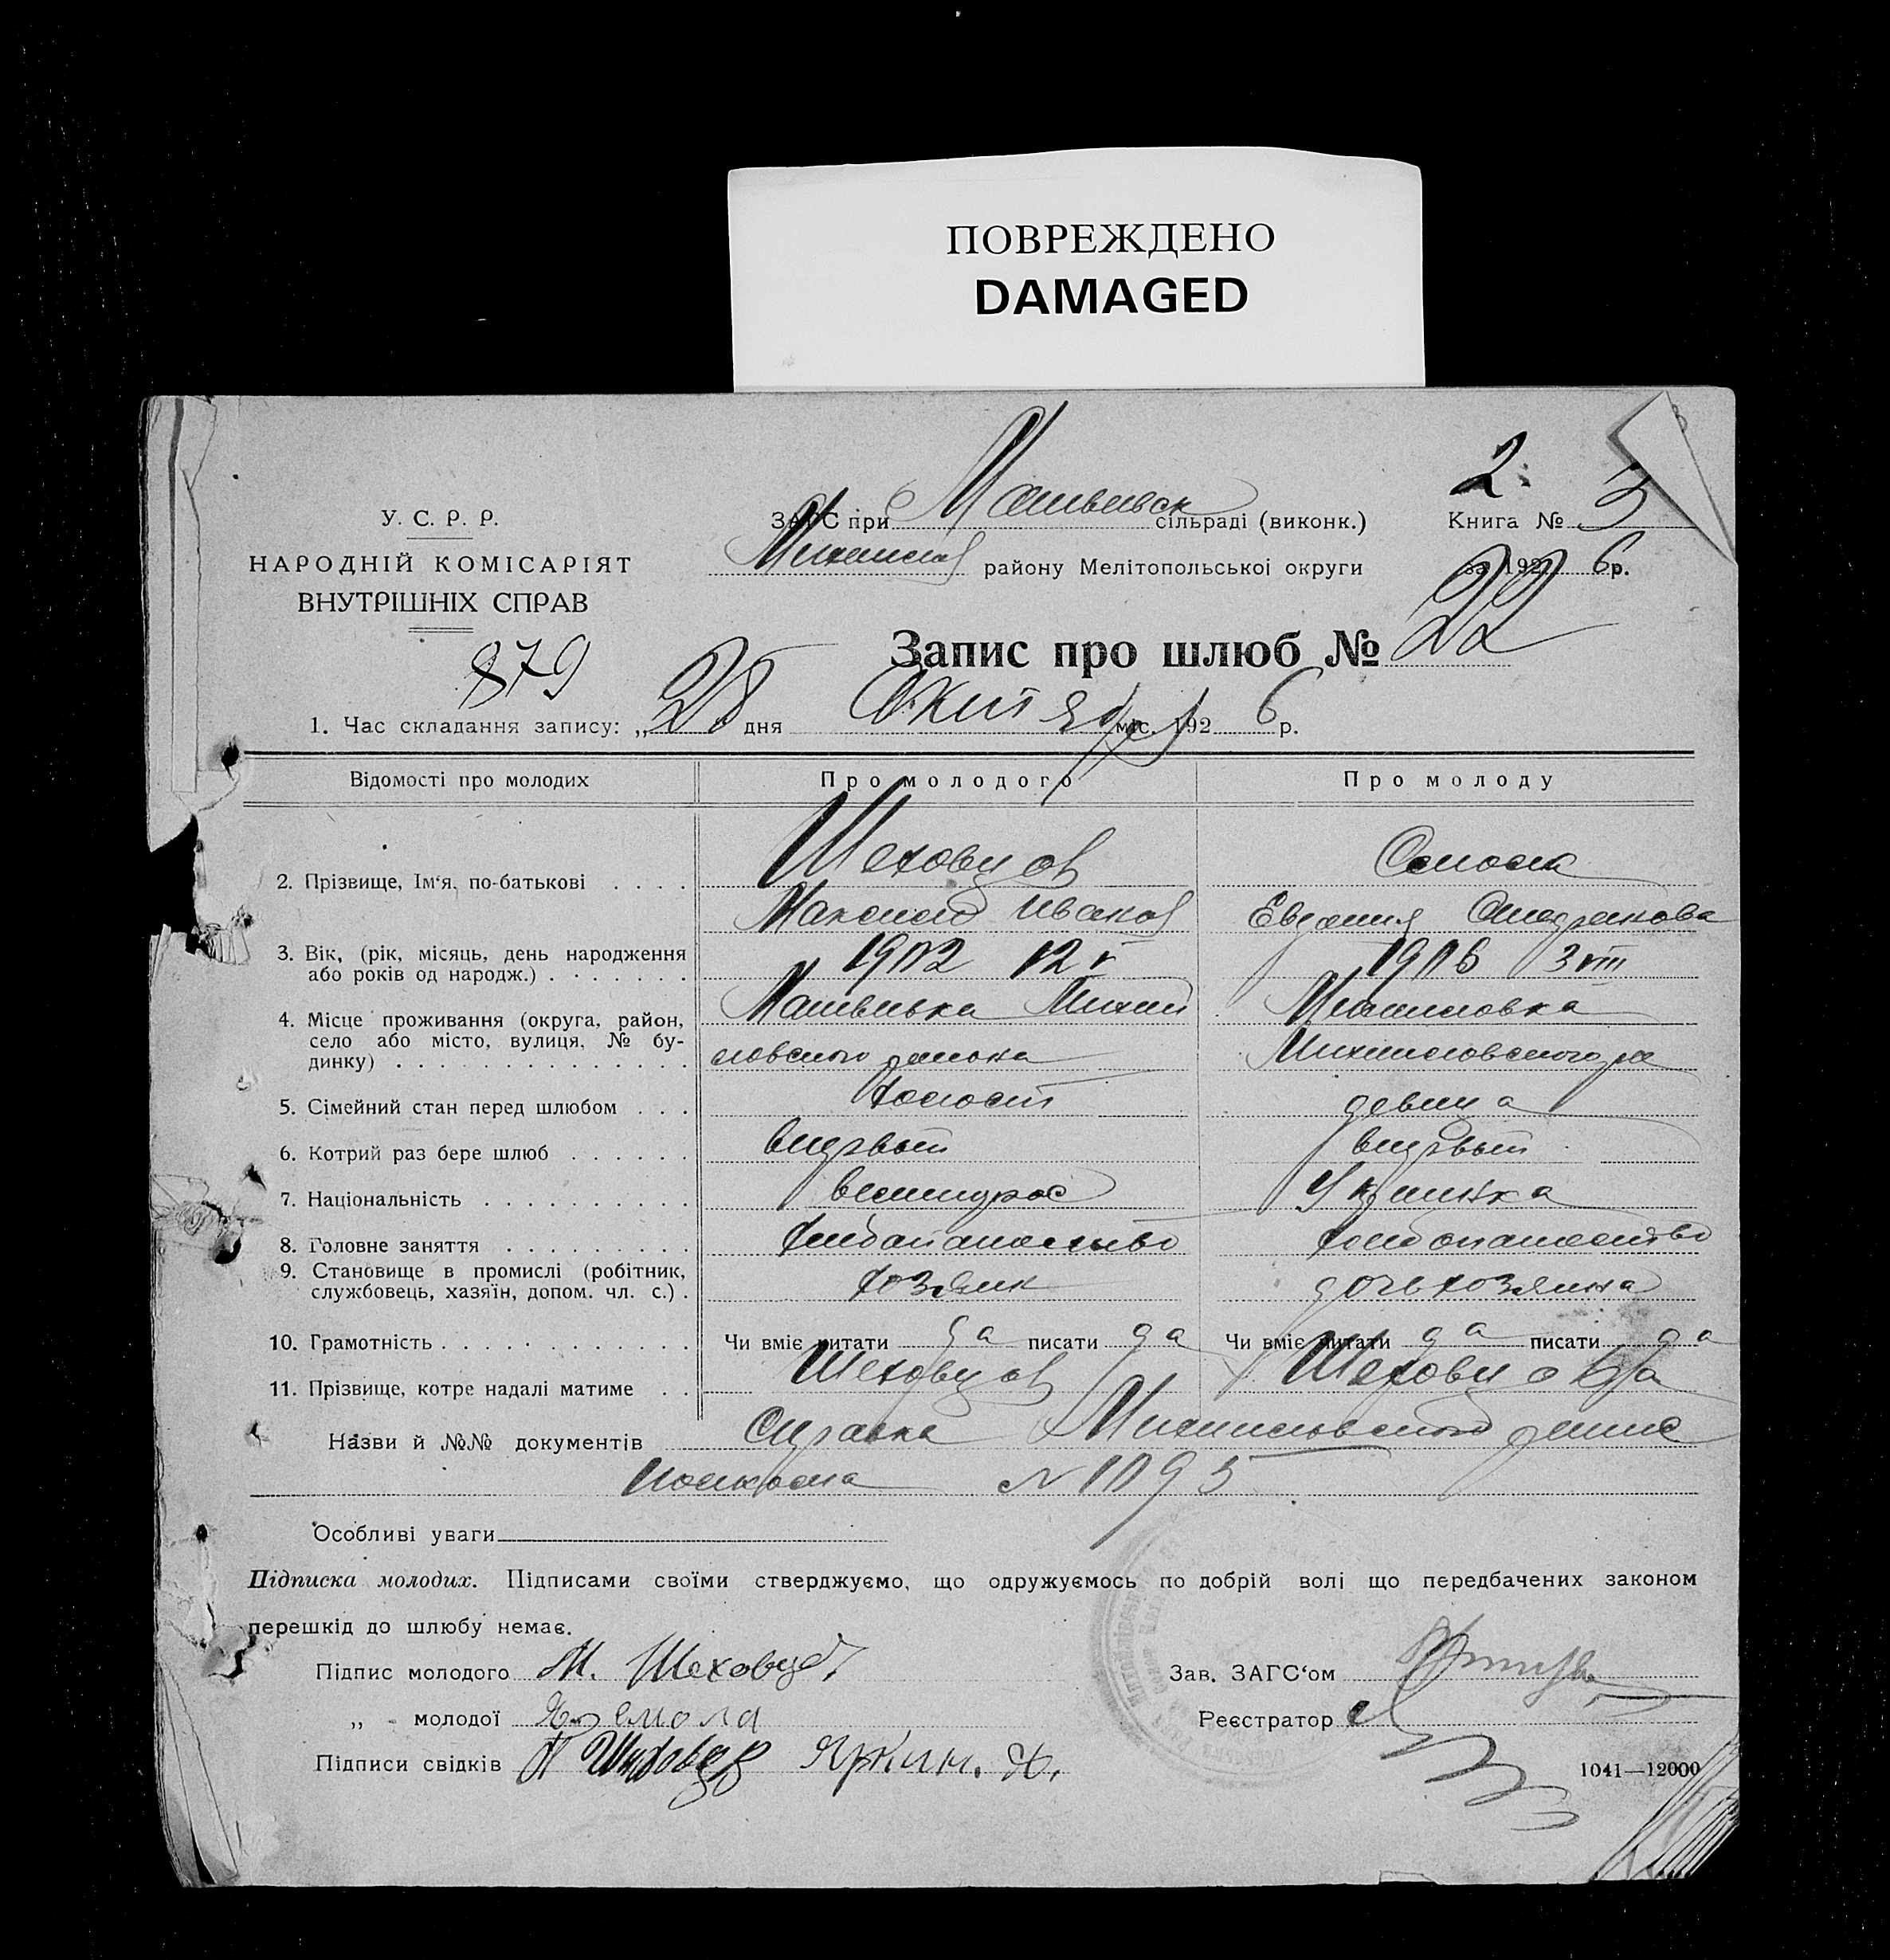 ПОВРЕЖДЕНО
DAMAGED
2.
У. С. Р. Р.
НАРОДНІЙ КОМІСАРІЯТ
ВНУТРІШНІХ СПРАВ
879
ЗАГС при сільраді (виконк.)
району Мелітопольської округи
Книга № 3
за 1926р.
Запис про шлюб № 22
1. Час складання запису: „28" дня Октября міс. 1926р.
Відомості про молодих Про молодого Про молоду
2. Прізвище, Ім‘я, по-батькові . . . . Шеховцов
Максим Иванов Евдокия
3. Вік, (рік, місяць, день народження 1902 12 V 1906 3 VIII
або років од народж.) . . . . . . .
4. Місце проживання (округа, район, Матвеевка Михай Михайловка
село або місто, вулиця, № бу-
динку) . . . . . . . . . . . . . . ловского района Михайловского ра
5. Сімейний стан перед шлюбом . . . Холост девица
6. Котрий раз бере шлюб . . . . . . впервый впервый
7. Національність . . . . . . . . . . великорос Украинка
8. Головне заняття . . . . . . . . . Хлебопашество Хлебопашество
9. Становище в промислі (робітник, хозяин дочь хозяина
службовець, хазяїн, допом. чл. с.) .
10. Грамотність . . . . . . . . . . . . Чи вміє читати да писати да Чи вміє читати да писати да
11. Прізвище, котре надалі матиме . . Шеховцов Шеховцова
Назви й №№ документів Справка Михайловского
№ 1095
Особливі уваги
Підписка молодих. Підписами своїми стверджуємо, що одружуємось по добрій волі що передбачених законом
перешкід до шлюбу немає.
Підпис молодого М. Шеховцов Зав. ЗАГС‘ом
„ - молодої Реєстратор
Підписи свідків Яркин. Д.
1041—12000